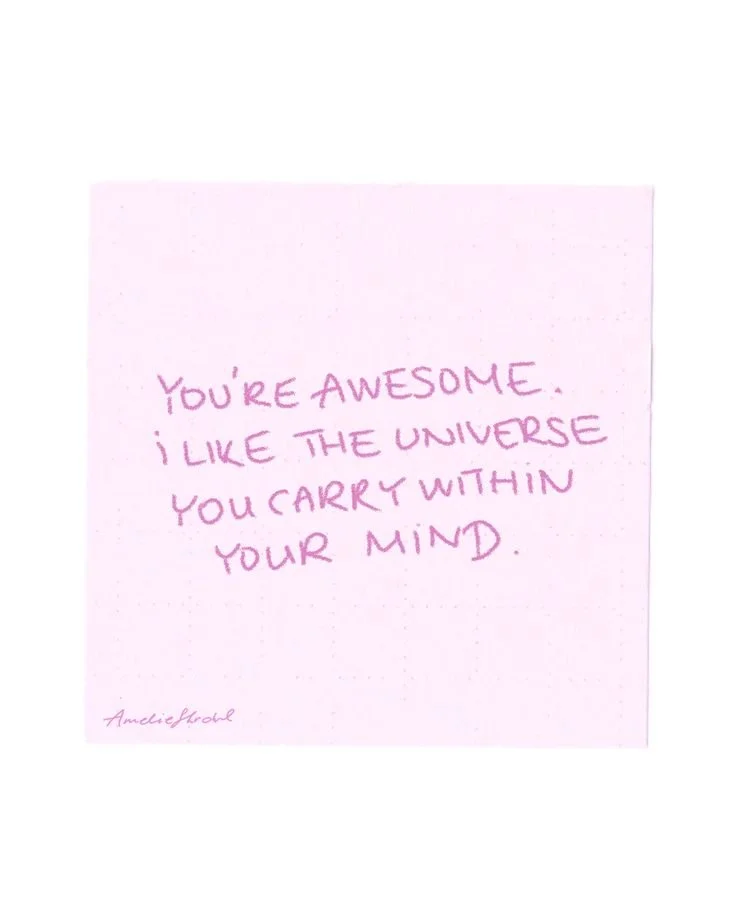 YOU'RE AWESOME.
i LIKE THE UNIVERSE
YOU CARRY WITHIN
YOUR MiND.